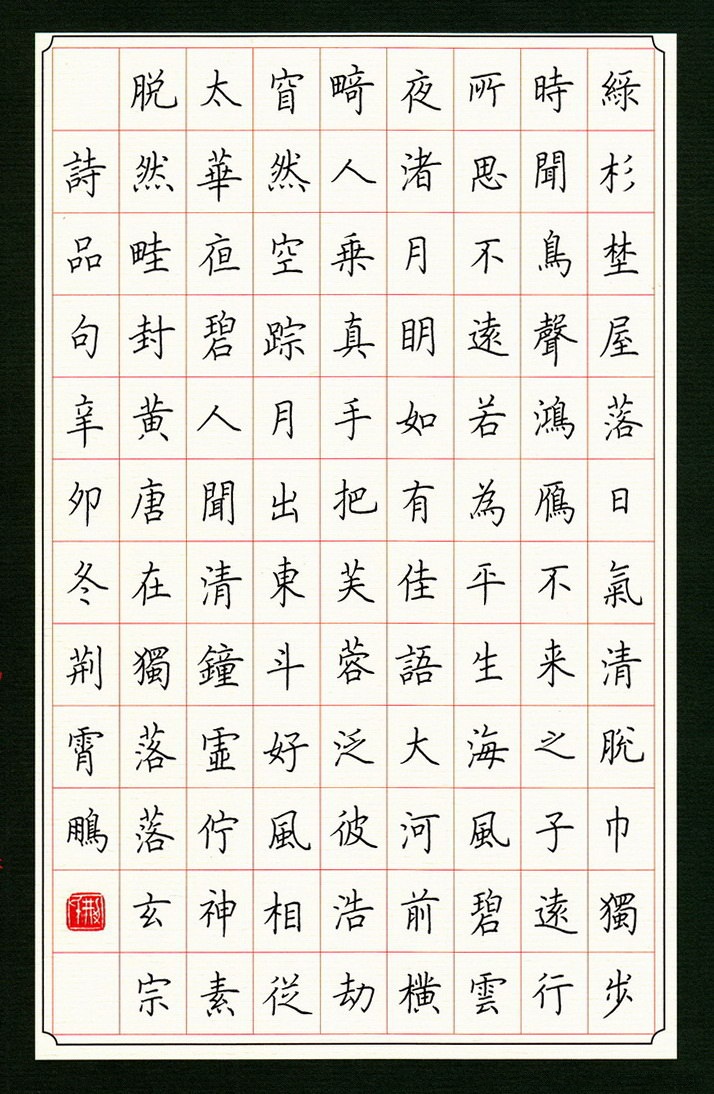 綠杉埜屋落日氣清脱巾獨步
時聞鳥聲鴻鴈不来之子遠行
所思不遠若為平生海風碧雲
夜渚月明如有佳語大河前橫
畸人乗真手把芙蓉泛彼浩劫
窅然空踪月出東斗好風相從
太華夜碧人聞清鐘虛佇神素
脱然畦封黄唐在獨落落玄宗
詩品句辛卯冬荆霄鵬